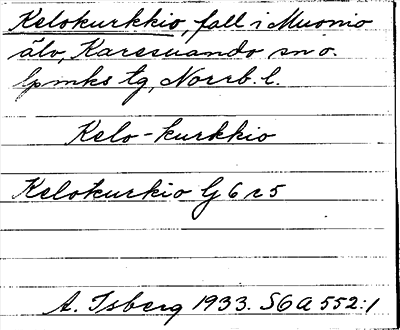 Kelokurkkio, fall i Muonio
älv, Karesuando sn o.
lpmks tg, Norrb. l.
Kelo-kurkkio
Kelokurkio G6r5
A. Isberg 1933. S6A 552:1